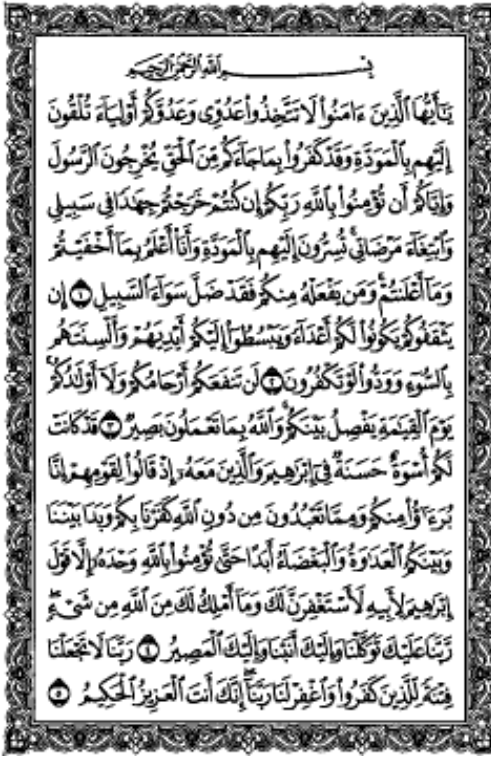 بِسْمِ اللَّهِ الرَّحْمَٰنِ الرَّحِيمِ
يَا أَيُّهَا الَّذِينَ ءَامَنُوا لَا تَتَّخِذُوا عَدُوِّي وَعَدُوَّكُمْ أَوْلِيَاءَ تُلْقُونَ
إِلَيْهِم بِالْمَوَدَّةِ وَقَدْ كَفَرُوا بِمَا جَاءَكُم مِّنَ الْحَقِّ يُخْرِجُونَ الرَّسُولَ
وَإِيَّاكُمْ أَن تُؤْمِنُوا بِاللَّهِ رَبِّكُمْ إِن كُنتُمْ خَرَجْتُمْ جِهَادًا فِي سَبِيلِي
وَابْتِغَاءَ مَرْضَاتِي تُسِرُّونَ إِلَيْهِم بِالْمَوَدَّةِ وَأَنَا أَعْلَمُ بِمَا أَخْفَيْتُمْ
وَمَا أَعْلَنتُمْ وَمَن يَفْعَلْهُ مِنكُمْ فَقَدْ ضَلَّ سَوَاءَ السَّبِيلِ ١ إِن
يَثْقَفُوكُمْ يَكُونُوا لَكُمْ أَعْدَاءً وَيَبْسُطُوا إِلَيْكُمْ أَيْدِيَهُمْ وَأَلْسِنَتَهُم
بِالسُّوءِ وَوَدُّوا لَوْ تَكْفُرُونَ ٢ لَن تَنفَعَكُمْ أَرْحَامُكُمْ وَلَا أَوْلَادُكُمْ
يَوْمَ الْقِيَامَةِ يَفْصِلُ بَيْنَكُمْ وَاللَّهُ بِمَا تَعْمَلُونَ بَصِيرٌ ٣ قَدْ كَانَتْ
لَكُمْ أُسْوَةٌ حَسَنَةٌ فِي إِبْرَاهِيمَ وَالَّذِينَ مَعَهُ إِذْ قَالُوا لِقَوْمِهِمْ إِنَّا
بُرَءَاؤُا مِنكُمْ وَمِمَّا تَعْبُدُونَ مِن دُونِ اللَّهِ كَفَرْنَا بِكُمْ وَبَدَا بَيْنَنَا
وَبَيْنَكُمُ الْعَدَاوَةُ وَالْبَغْضَاءُ أَبَدًا حَتَّىٰ تُؤْمِنُوا بِاللَّهِ وَحْدَهُ إِلَّا قَوْلَ
إِبْرَاهِيمَ لِأَبِيهِ لَأَسْتَغْفِرَنَّ لَكَ وَمَا أَمْلِكُ لَكَ مِنَ اللَّهِ مِن شَيْءٍ
رَّبَّنَا عَلَيْكَ تَوَكَّلْنَا وَإِلَيْكَ أَنَبْنَا وَإِلَيْكَ الْمَصِيرُ ٤ رَبَّنَا لَا تَجْعَلْنَا
فِتْنَةً لِّلَّذِينَ كَفَرُوا وَاغْفِرْ لَنَا رَبَّنَا إِنَّكَ أَنتَ الْعَزِيزُ الْحَكِيمُ ٥